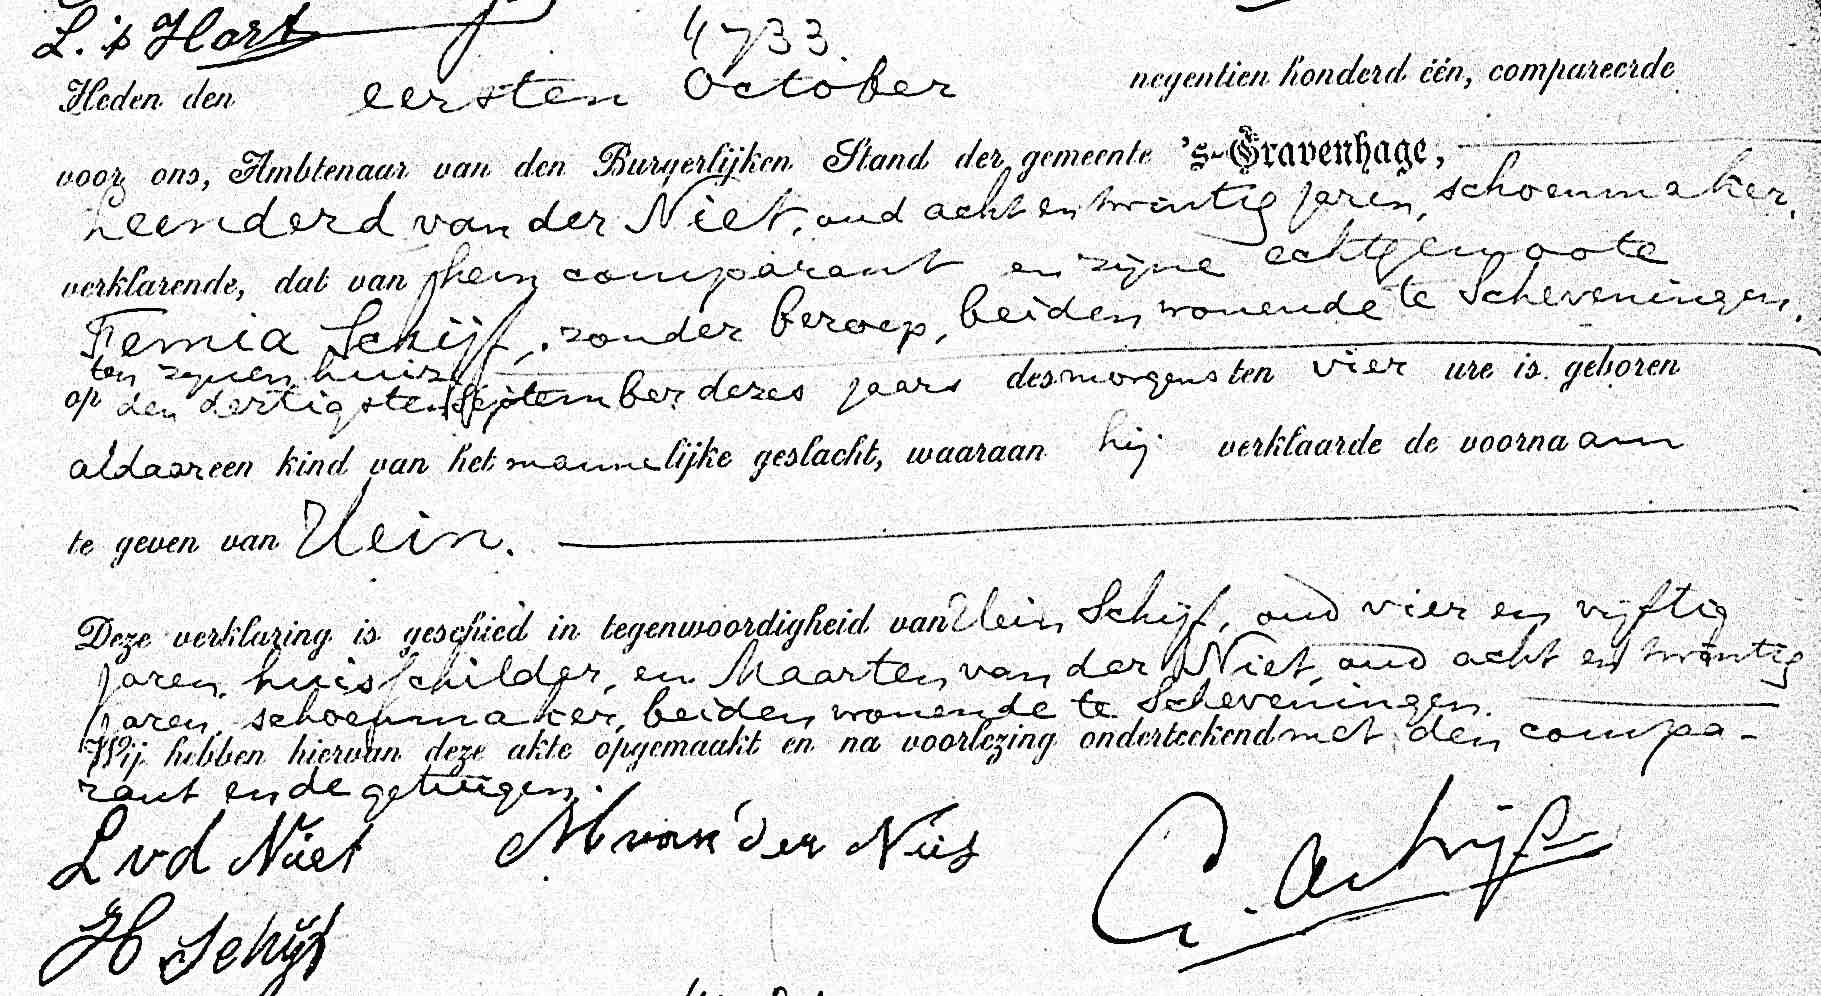 L. 's Hart
4733.
Heden den eersten October negentien honderd één, compareerde
voor ons, Ambtenaar van den Burgerlijken Stand der gemeente 's-Gravenhage,
Leenderd van der Niet, oud acht en twintig jaren, schoenmaker,
verklarende, dat van hem comparant en zijne echtgenoote
Femia Schijf, zonder beroep, beiden wonende te Scheveningen,
ten zijnen huize
op den dertigsten September dezes jaars des morgens ten vier ure is geboren
aldaar een kind van het mannelijke geslacht, waaraan hij verklaarde de voornaam
te geven van Hein.
Deze verklaring is geschied in tegenwoordigheid van Hein Schijf, oud vier en vijftig
jaren, huisschilder, en Maarten van der Niet, oud acht en twintig
jaren, schoenmaker, beiden wonende te Scheveningen.
Wij hebben hiervan deze akte opgemaakt en na voorlezing onderteekend met den compa-
rant en de getuigen.
L vd Niet M van der Niet
H Schijf